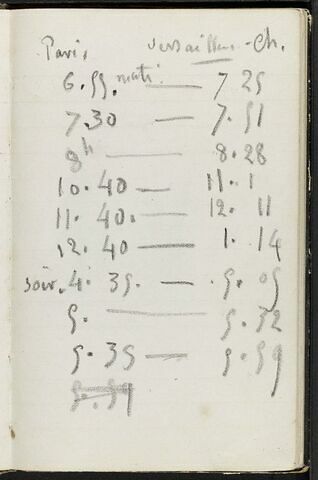 Paris Versailles-Ch.
6.55. mati. — 7 25
7.30 — 7.51
8h — 8.28
10.40 — 11.1
11.40. — 12.11
12.40 — 1.14
soir. 4.35. — 5.05
5. — 5.32
5.35 — 5.59
5.59